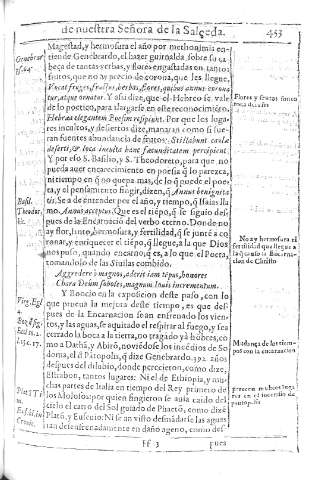 de nuestra Señora de la Salceda. 453
Magestad, y hermosura el año por methonimia en-
tiende Genebrardo, el hazer guirnalda sobre su ca-
beça de tantas yerbas, y flores engastadas en tantos
frutos, que no ay precio de corona, que les llegue,
Vocat fruges, fructus, herbas, flores, quibus annus corona
tur, atque ornatur. Y añadize, que el Hebreo se vale
de lo poetico, para alargarse en este reconocimiẽto,
Hebræa elegantem Poesim respiciunt. Por que los luga-
res incultos, y desiertos dize, manaràn como si fue-
ran fuentes abundancia de frutos. Stillabunt co
deserti, & loca inculta hanc fœcunditatem percipient
Y por eso S. Basilio, y S. Theodoreto, para que no
pueda auer encarecimiento en poesia q̃ lo parezca,
ni tiempo en q̃ no quepa mas, de lo q̃ puede el poe-
ta, y el pensamiento fingir, dizen, q̃ Annus benignita
tis. Se a de entender por el año, y tiempo, q̃ Isaias lla-
mo. Annus acceptus. Que es el tiẽpo, q̃ se siguio des-
pues de la Encarnacion del verbo eterno. Donde no
ay flor, fruto, hermosura, y fertilidad, q̃ se junte a co
ronar, y enriquecer el tiẽpo, q̃ llegue, a la que Dios
nos puso, quando encarnó, q̃ es, a lo que el Poeta,
tomandolo de las Siuilas combido.
Aggredere ò magnos, aderit iam tẽpus, honores
Chara Deum soboles, magnum Iouis incrementum.
Y Boecio en la exposicion deste paso, con lo
que prueua la mejora deste tiempo, es que des-
pues de la Encarnacion se an enfrenado los vien-
tos, y las aguas, se a quitado el respirar al fuego, y se a
cerrado la boca a la tierra, no tragado ya hõbres, co
mo a Dathã, y Abirõ, noviẽdose los incẽdios de So
doma, el d̃ Pẽtapolis, q̃ dize Genebrardo. 392 años
despues del dilubio, donde perecieron, como dize,
Estrabon, tantos lugares: Ni el de Ethiopia, y mu
chas partes de Italia en tiempo del Rey primero de
los Molosos, por quien fingieron se auia caido del
cielo el carro del Sol guiado de Phaetõ, como dize
Platõ, y Eusenio: Ni se an visto desatadas las aguas
tan desenfrenadamente en daño ageno, como des-
Ff 3 pues
Genebrar
Basil.
Theodor
Virg. Egl
4.
Eusebi. in
Cronic.
Flores y frutos
No ay hermosura ni
fertilidad que llegue a
Mudança de los tiem-
pos con la encarnacion